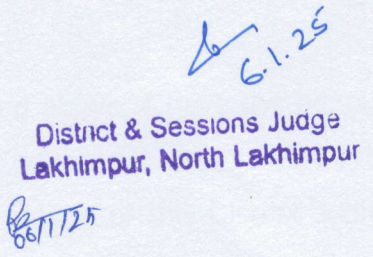 6.1.25
District & Sessions Judge
Lakhimpur, North Lakhimpur
06/1/25